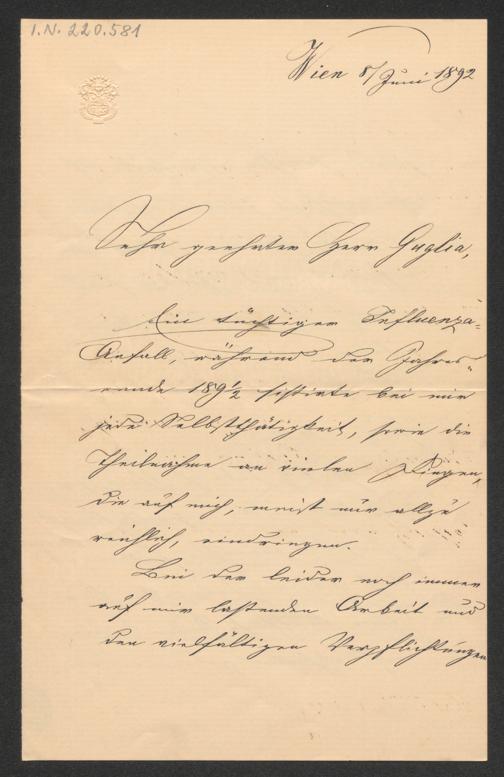 I.N. 220.581
Wien 8/ Juni 1892
Sehr geehrter Herr Guglia,
Ein tüchtiger Influenza-
Anfall, während der Jahres-
wende 1891/2 sistirte bei mir
jede Selbstthätigkeit, sowie die
Theilnahme an vielen Dingen,
die auf mich, meist nur allzu
reichlich, eindringen.
Bei der leider noch immer
auf mir lastenden Arbeit und
den vielfältigen Verpflichtungen